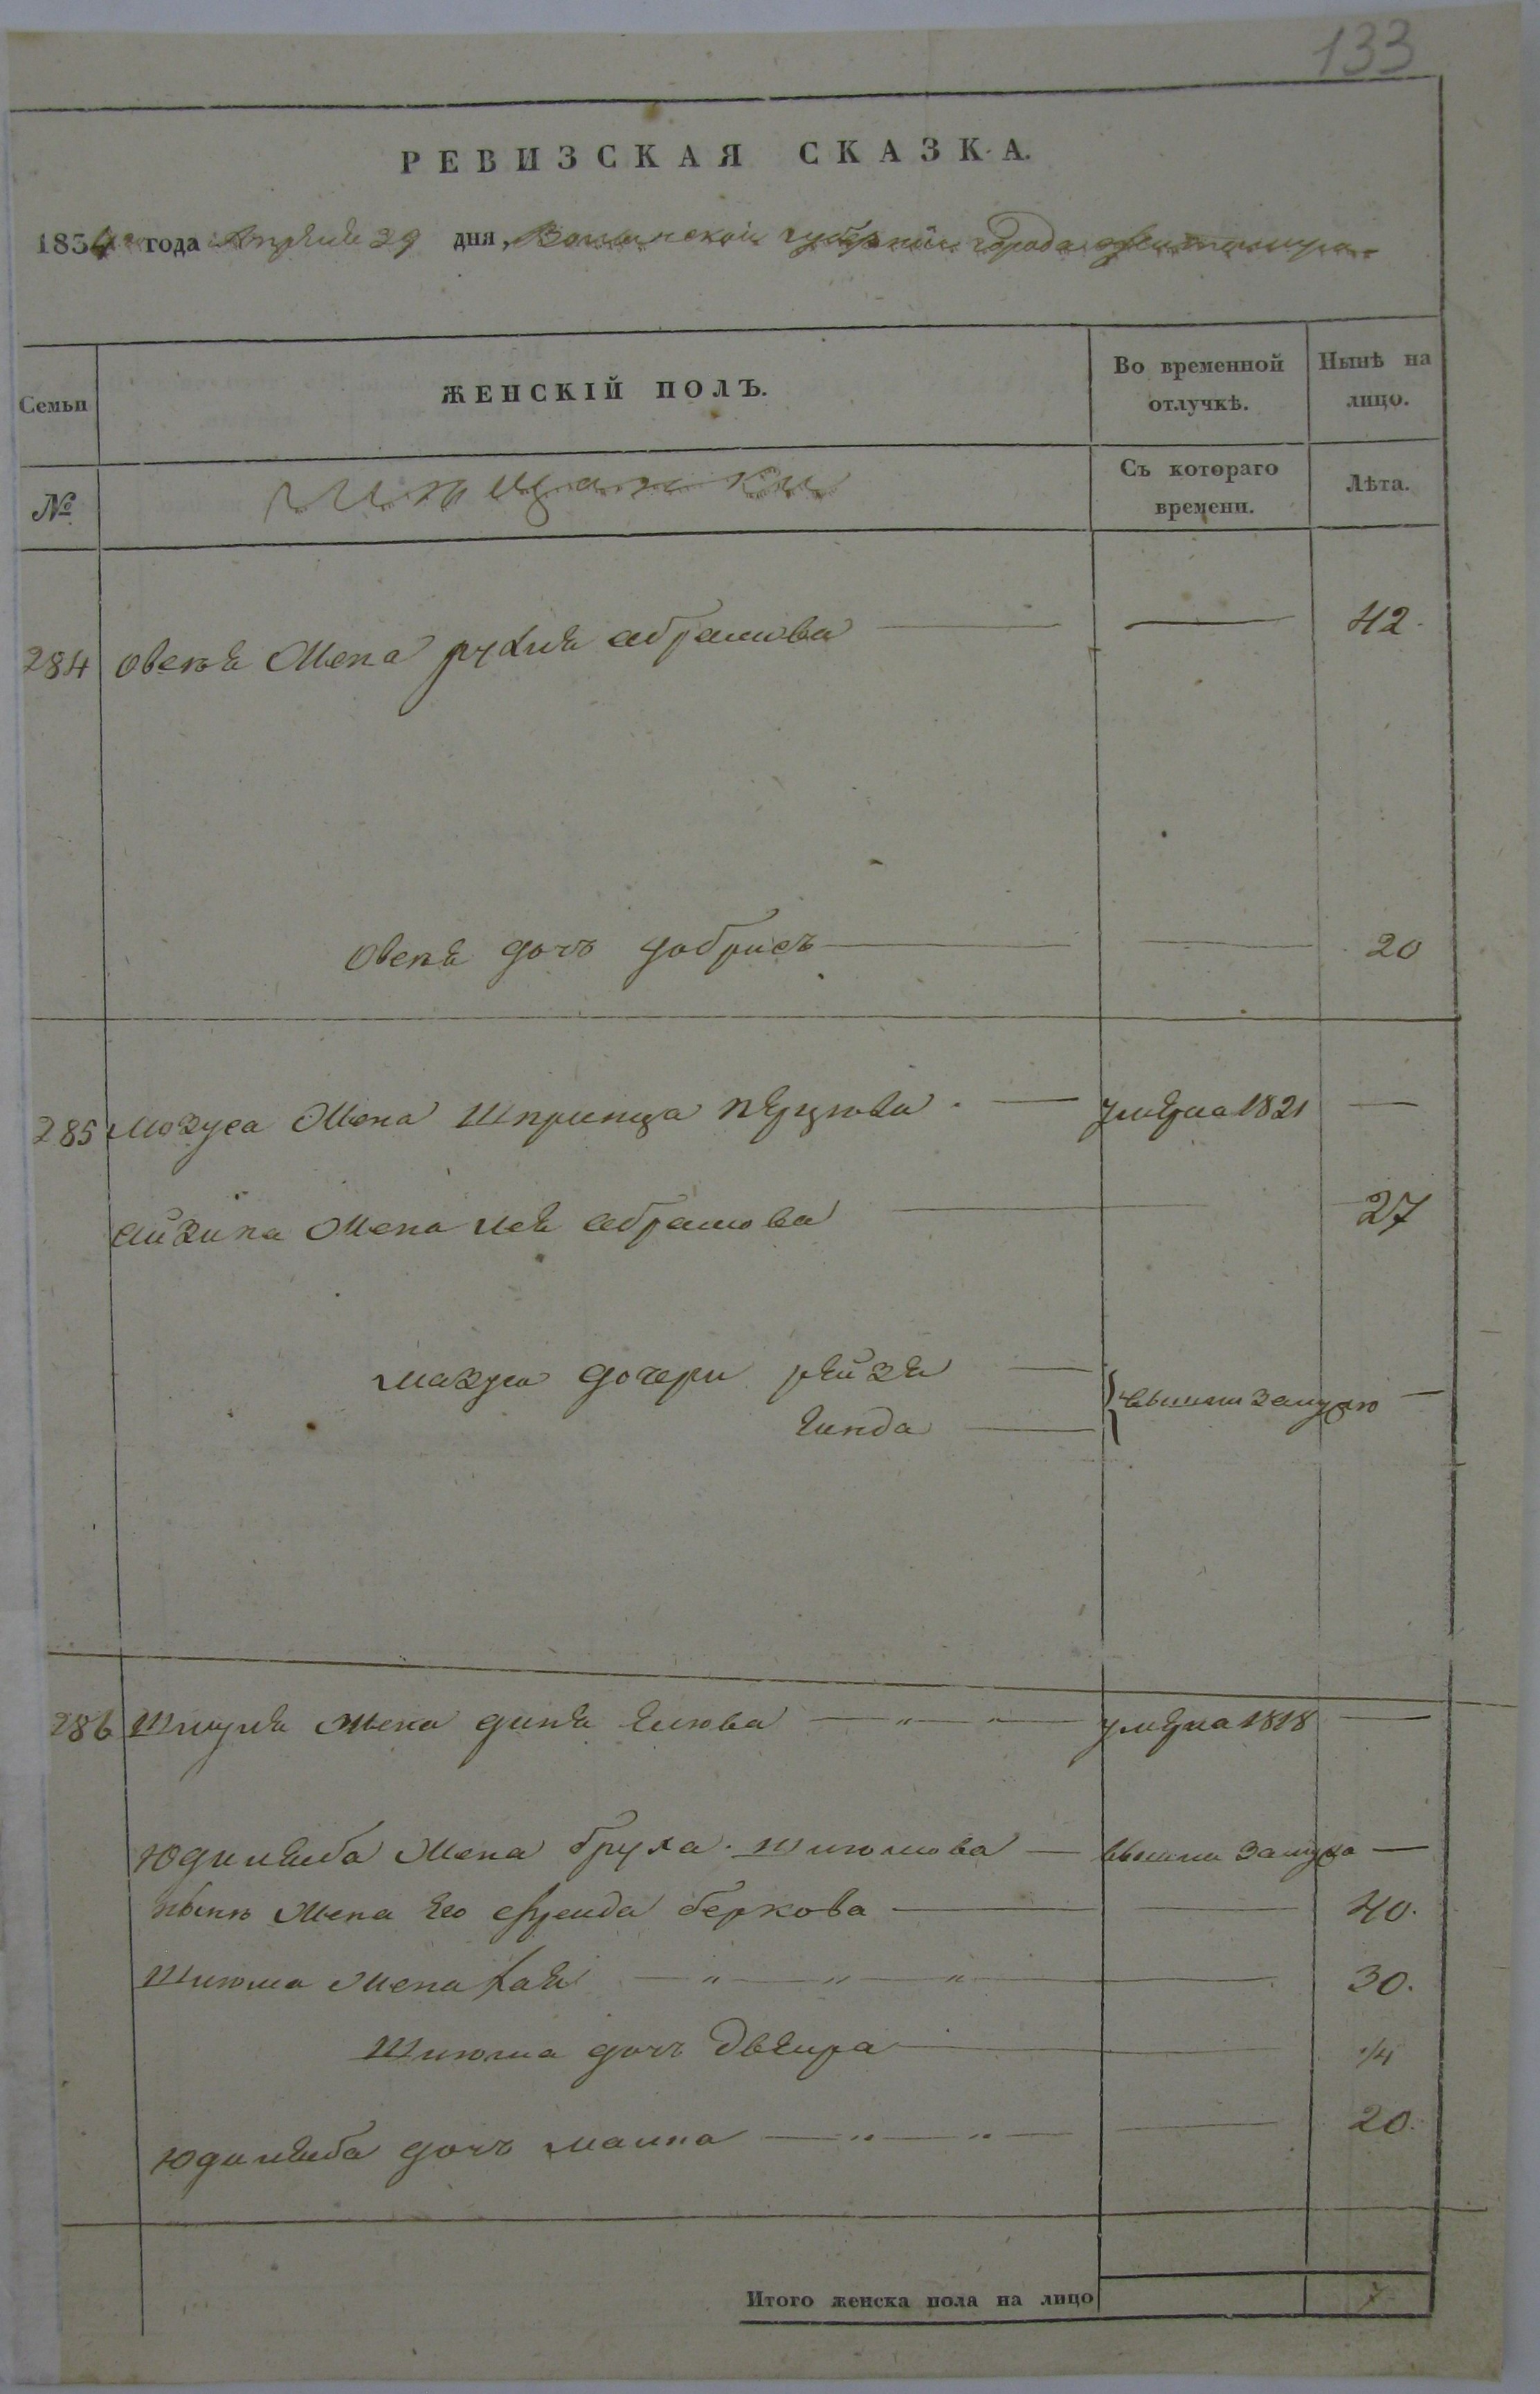 133
РЕВИЗСКАЯ СКАЗКА.
1834го года Апреля 29 дня, Волынской губернии города Житомира
Семьи
ЖЕНСКІЙ ПОЛЪ.
Во временной отлучкѣ.
Нынѣ на лицо.
№
Мѣщанки
Съ котораго времени.
Лѣта.
284 Овсея жена Рухля абрамова — — 42.
Овсея дочъ добрисъ — — 20
285 Мозуса жена Шпринца перцова — умерла 1821 —
айзика жена лея абрамова — 27
мазуса дочери рейзя —
гинда — вышли замужъ —
286 Шмуля жена диня елюва — " — " — умерла 1818 —
Юдилейба жена бруха шлюмова — вышли замужъ —
нынѣ жена его фрейда беркова — — 40.
Шлюма жена хая — " — " — " — — 30.
Шлюма дочъ двейра — — 1/4
Юдилейба дочъ малка — " — " — — 20.
Итого женска пола на лицо 7